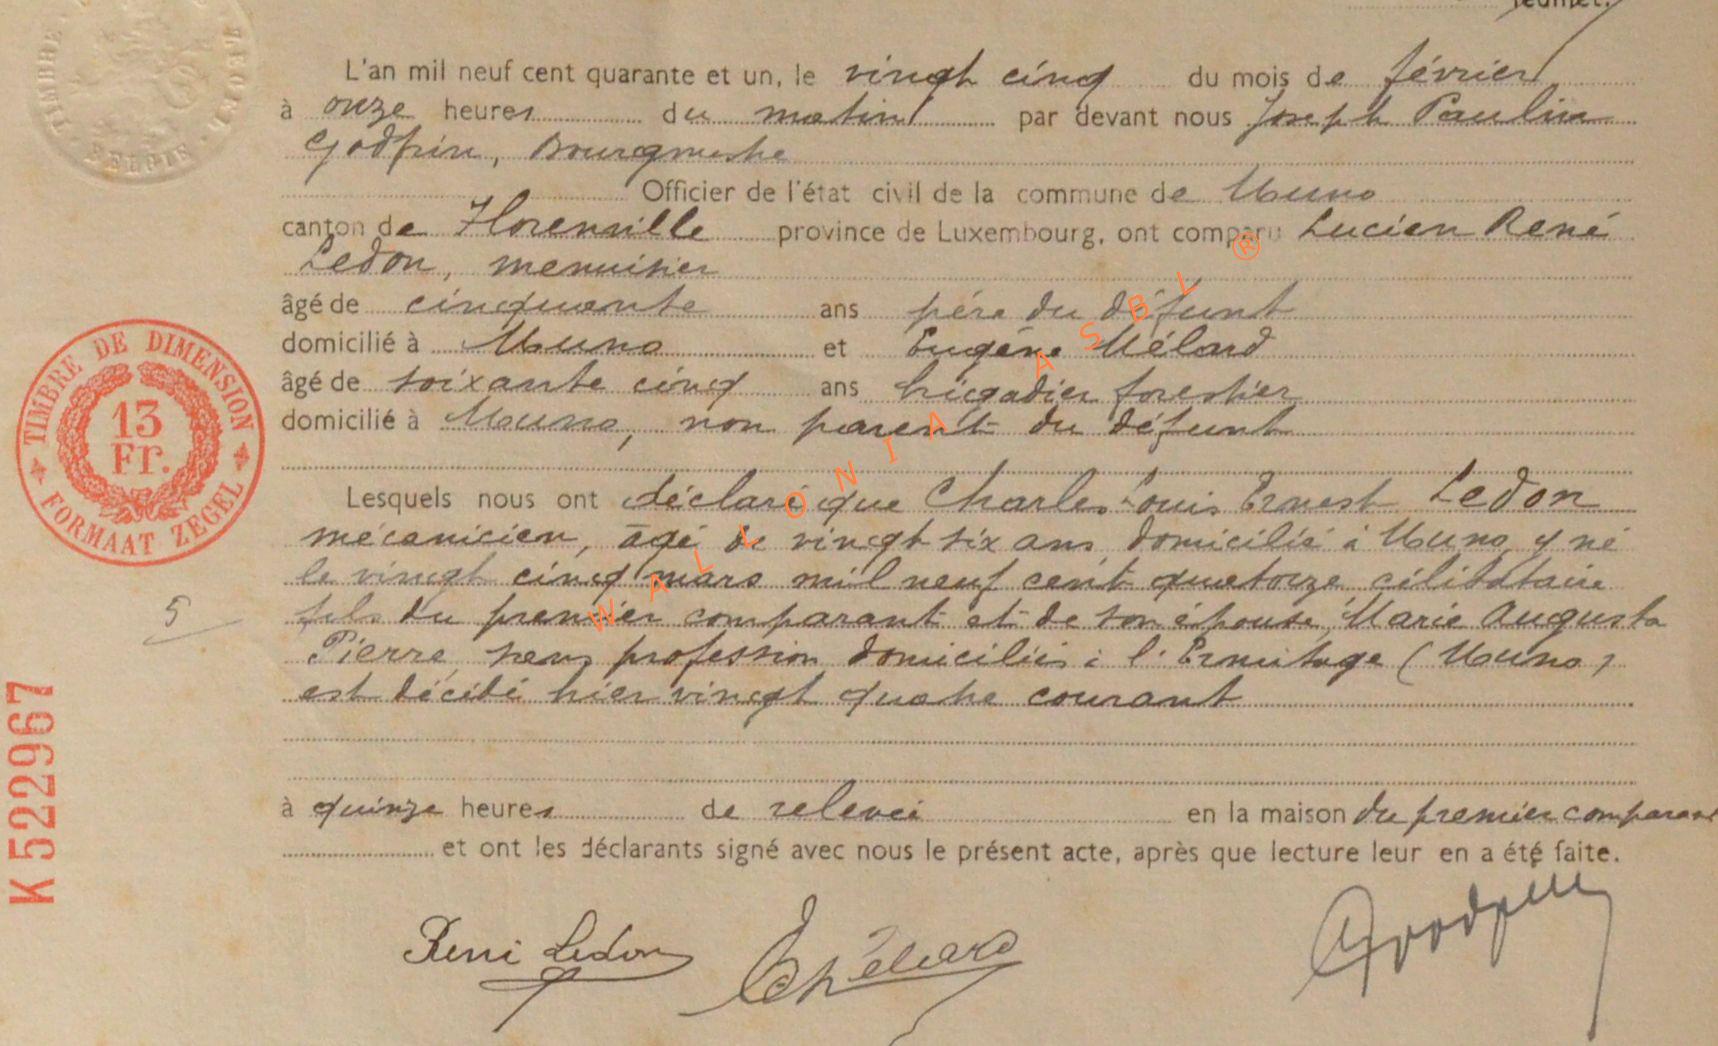 feuillet.
L'an mil neuf cent quarante et un, le vingt cinq du mois de février
à onze heures du matin par devant nous Joseph Paulin
Godfrin, Bourgmestre
Officier de l'état civil de la commune de Muno
canton de Florenville province de Luxembourg, ont comparu Lucien René
Ledon, menuisier
âgé de cinquante ans père du défunt
domicilié à Muno et Eugène Mélard
âgé de soixante cinq ans brigadier forestier
domicilié à Muno, non parent du défunt
Lesquels nous ont déclaré que Charles Louis Ernest Ledon
mécanicien, âgé de vingt six ans domicilié à Muno, y né
le vingt cinq mars mil neuf cent quatorze célibataire
fils du premier comparant et de son épouse, Marie Augusta
Pierre, sans profession domiciliés à l'Ermitage (Muno)
est décédé hier vingt quatre courant
à quinze heures de relevée en la maison du premier comparant
et ont les déclarants signé avec nous le présent acte, après que lecture leur en a été faite.
René Ledon Mélard Godfrin
TIMBRE BELGIE
TIMBRE DE DIMENSION
13
Fr.
FORMAAT ZEGEL
5
K 522967
WALLONIA ASBL ®